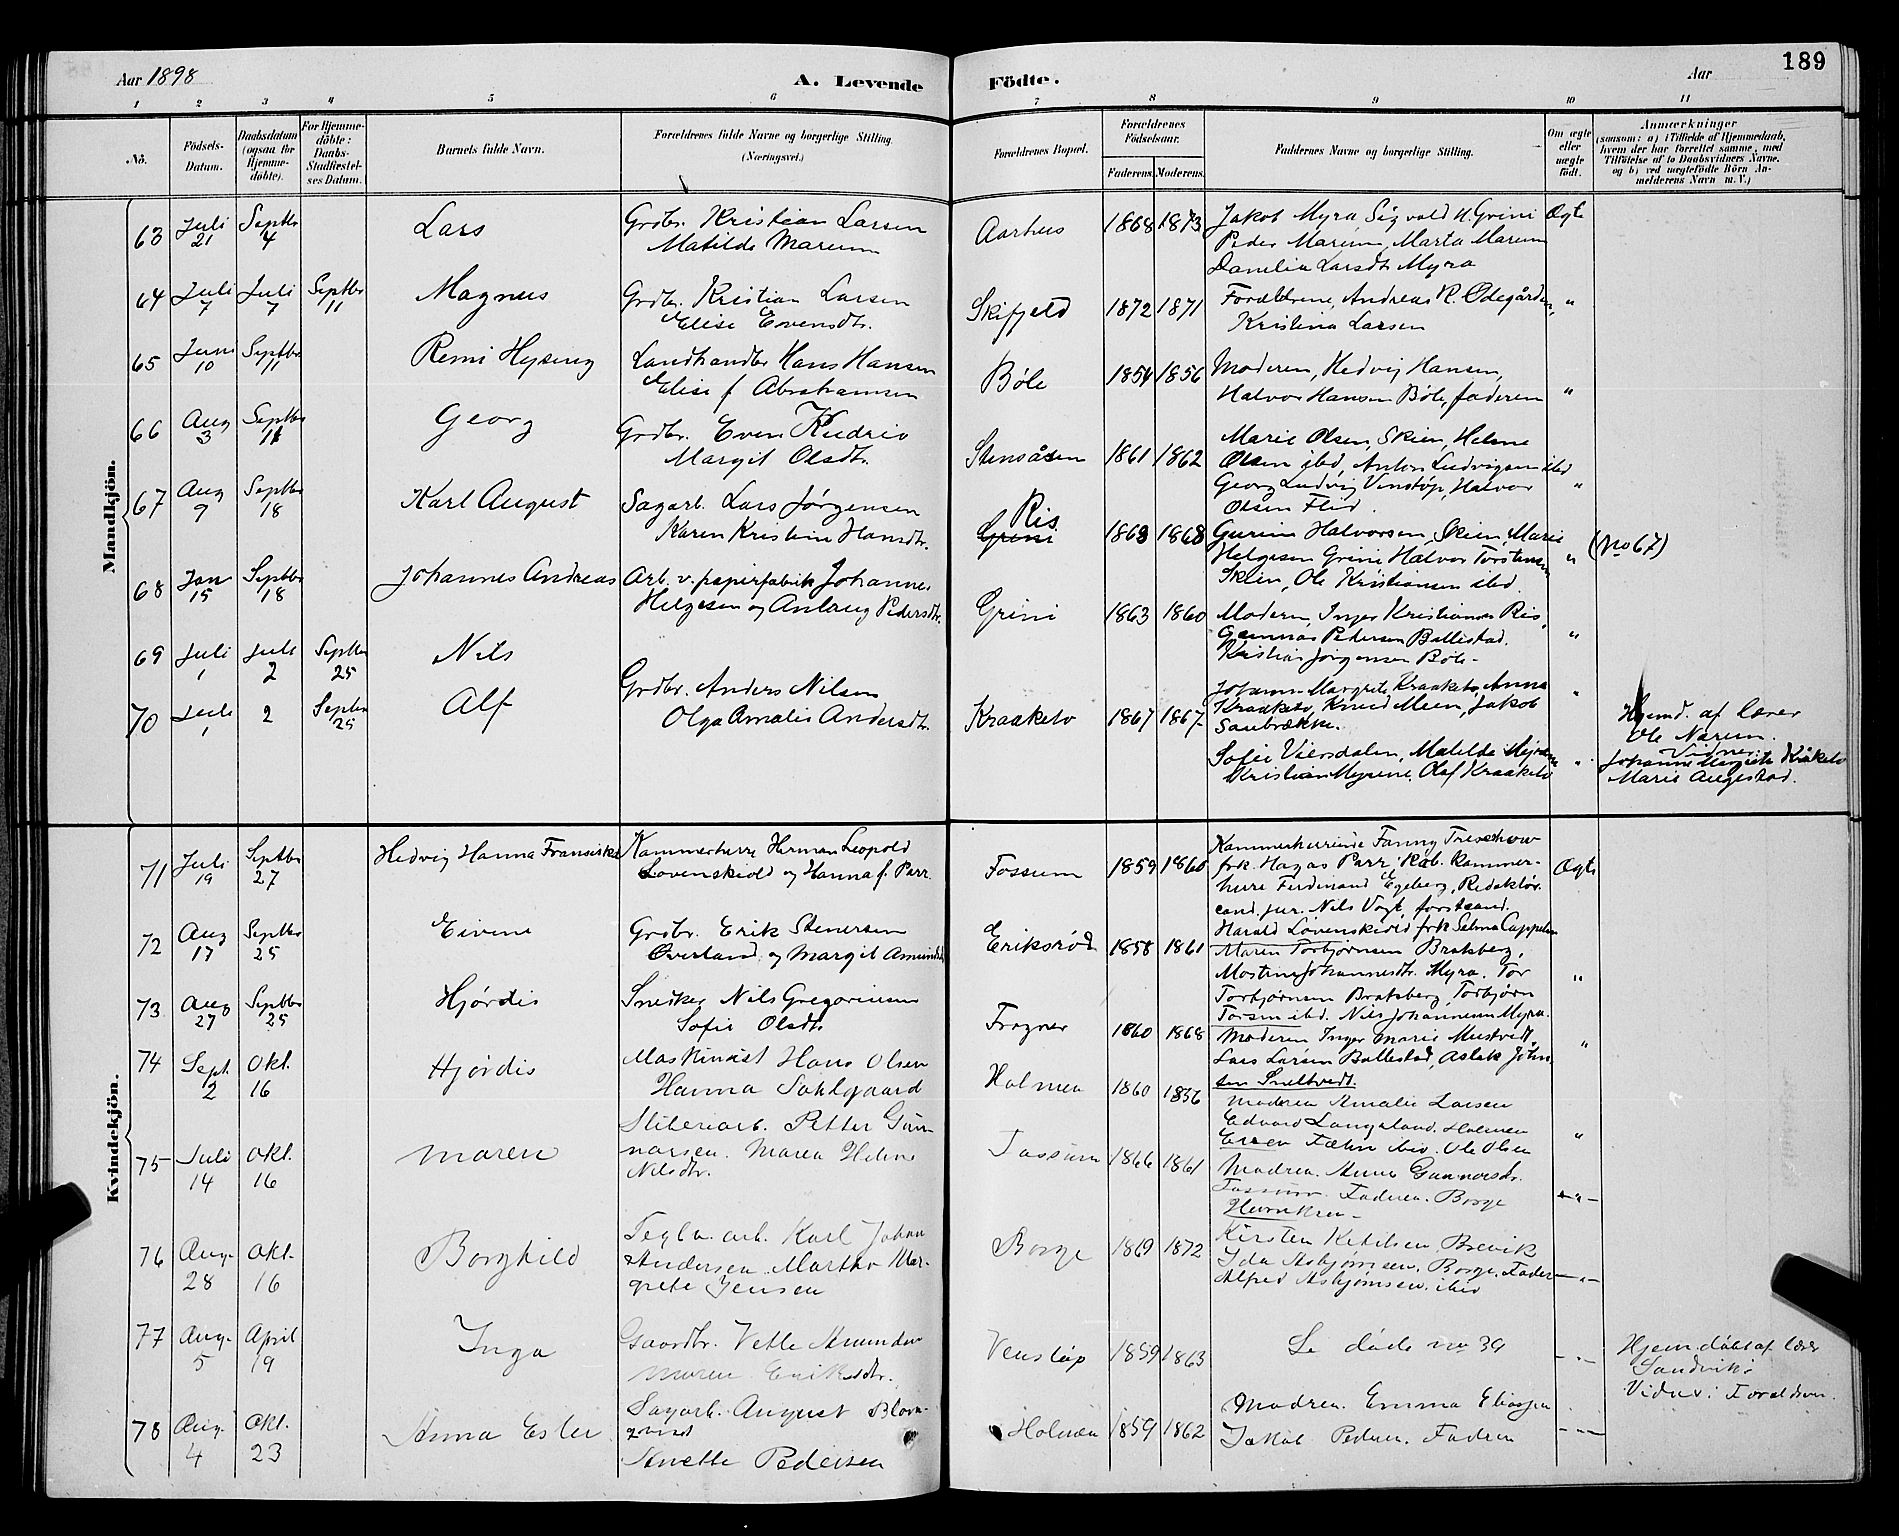 Aar 1898
A. Levende Födte.
Aar
189
1 2 3 4 5 6 7 8 9 10 11
No.
Födsels-Datum.
Daabsdatum (ogsaa for Hjemme-döbte).
For Hjemme-döbte: Daabs-Stadfæstel-ses Datum.
Barnets fulde Navn.
Forældrenes fulde Navne og borgerlige Stilling.
(Næringsvei.)
Forældrenes Bopæl.
Forældrenes Födselsaar.
Faderens. Moderens.
Faddernes Navne og borgerlige Stilling.
Om ægte eller uægte födt.
Anmærkninger
(saasom: a) i Tilfælde af Hjemmedaab,
hvem der har forrettet samme, med
Tilföielse af to Daabsvidners Navne,
og b) ved uægtefödte Börn An-
melderens Navn m. V.)
Mandkjön.
63 Juli 21 Septbr 4 Lars
Grdbr. Kristian Larsen
Matilde Marum
Aarhus 1868 1873
Jakob Myra, Sigvald H. Grini
Peder Marum, Marta Marum
Danelia Larsdtr Myra
Ægte
64 Juli 7 Juli 7 Septbr 11 Magnus
Grdbr. Kristian Larsen
Elise Evensdtr.
Skifjeld 1872 1871
Forældrene, Andreas R. Ødegården,
Kristina Larsen
"
65 Juni 10 Septbr 11 Remi Hysing
Landhandler Hans Hansen
Elise f Abrahamsen
Böle 1854 1856
Moderen, Hedvig Hansen,
Halvor Hansen Böle, faderen
"
66 Aug 3 Septbr 11 Georg
Grdbr. Even Kudrio
Margit Olsdtr.
Stensåsen 1861 1862
Marie Olsen, Skien, Helene
Olsen ibd, Anton Ludvigsen ibd
Georg Ludvig Venstöp, Halvor
Olsen Flid.
"
67 Aug 9 Septbr 18 Karl August
Sagarb. Lars Jørgensen
Karen Kristine Hansdtr.
Ris
Grini 1868 1868
Gurine Halvorsen, Skien, Marie
Helgesen Grini Halvor Torstensen
Skien, Ole Kristiansen ibd.
" (No 67)
68 Jan 15 Septbr 18 Johannes Andreas
Arb. v. papirfabrik Johannes
Helgesen og Anlaug Pedersdtr.
Grini 1863 1860
Moderen, Inger Kristiansen Ris,
Gunnar Pedersen Ballestad.
Kristian Jörgensen Böle-
"
69 Juli 1 Juli 2 Septbr 25 Nils
Johanne Margrete Kraaketo, Anna
Kraaketo, Knud Meen, Jakob
Saubrække.
"
70 Juli 1 2 Septbr 25 Alf
Grdbr. Anders Nilsen
Olga Amalie Andersdtr.
Kraaketo 1867 1867
Sofie Viersdalen, Matilde Myrene
Kristian Myrene, Olaf Kraaketo
"
Hjemd. af lærer
Ole Narum.
Vidner
Johanne Margrete Kråketo
Marie Augestad.
Kvindekjön.
71 Juli 19 Septbr 27 Hedvig Hanna Fransiska
Kammerherre Herman Leopold
Lovenskiold og Hanna f. Parr.
Fossum 1859 1860
Kammerherreinde Fanny Treschow
frk. Parr Kammer-
herre Ferdinand Egeberg, Redaktör
cand. jur. Nils Vogt, forstcand.
Harald Lövenskiold frk Selma Cappelen
Ægte
72 Aug 17 Septbr 25 Eivine
Grdbr. Erik Stenersen
Överland og Margit Amundsd.
Eriksröd 1858 1861
Maren Torbjörnsen Bratsberg,
Mostine Johannesdtr. Myra. Tor
Torbjörnsen Bratsberg, Torbjörn
Torsen ibd. Nils Johannesen Myra.
"
73 Aug 27 Septbr 25 Hjördis
Snedker Nils Gregoriusen
Sofie Olsdtr
Frogner 1860 1868
Moderen Inger Marie Mustvedt,
Lars Larsen Ballestad, Aslak John-
sen Sneltvedt.
"
74 Sept. 2 Okt. 16 Hjördis
Maskinist Hans Olsen
Hanna Sahlgaard
Holmen 1860 1856
Moderen Amalie Larsen
Edvard Langeland. Holmen
Fæhn ibid. Ole Olsen
"
75 Juli 14 Okt. 16 Maren
Sliberiarb. Petter Gun-
narsen. Maren Helene
Nilsdtr.
Fossum 1866 1861
Modren. Anne Gunnarsdr.
Fossum. Faderen. Borge
Henriksen-
-"-
76 Aug. 28 Okt. 16 Borghild
Teglv. arb. Karl Johan
Andersen. Marthe Mar-
grete Jensen
Borge 1869 1872
Kirsten Ketilsen, Brevik
Ida Asbjörnsen. Borge. Fader
Alfred Asbjörnsen. ibid
-"-
77 Aug. 5 April 19 Inga
Gaardbr. Vetle Amundsen
Maren Eriksdtr.
Venstöp 1859 1863
Se döde no 39
-"-
Hjemdöbt af lærer
Sandvik
Vidner: Foreldren.
78 Aug. 4 Okt. 23 Anna Ester
Sagarb. August Blom-
qvist
Anette Pedersen
Holmen 1859 1862
Modren. Emma Eliasen
Jakob Pedersen. Fadren
-"-